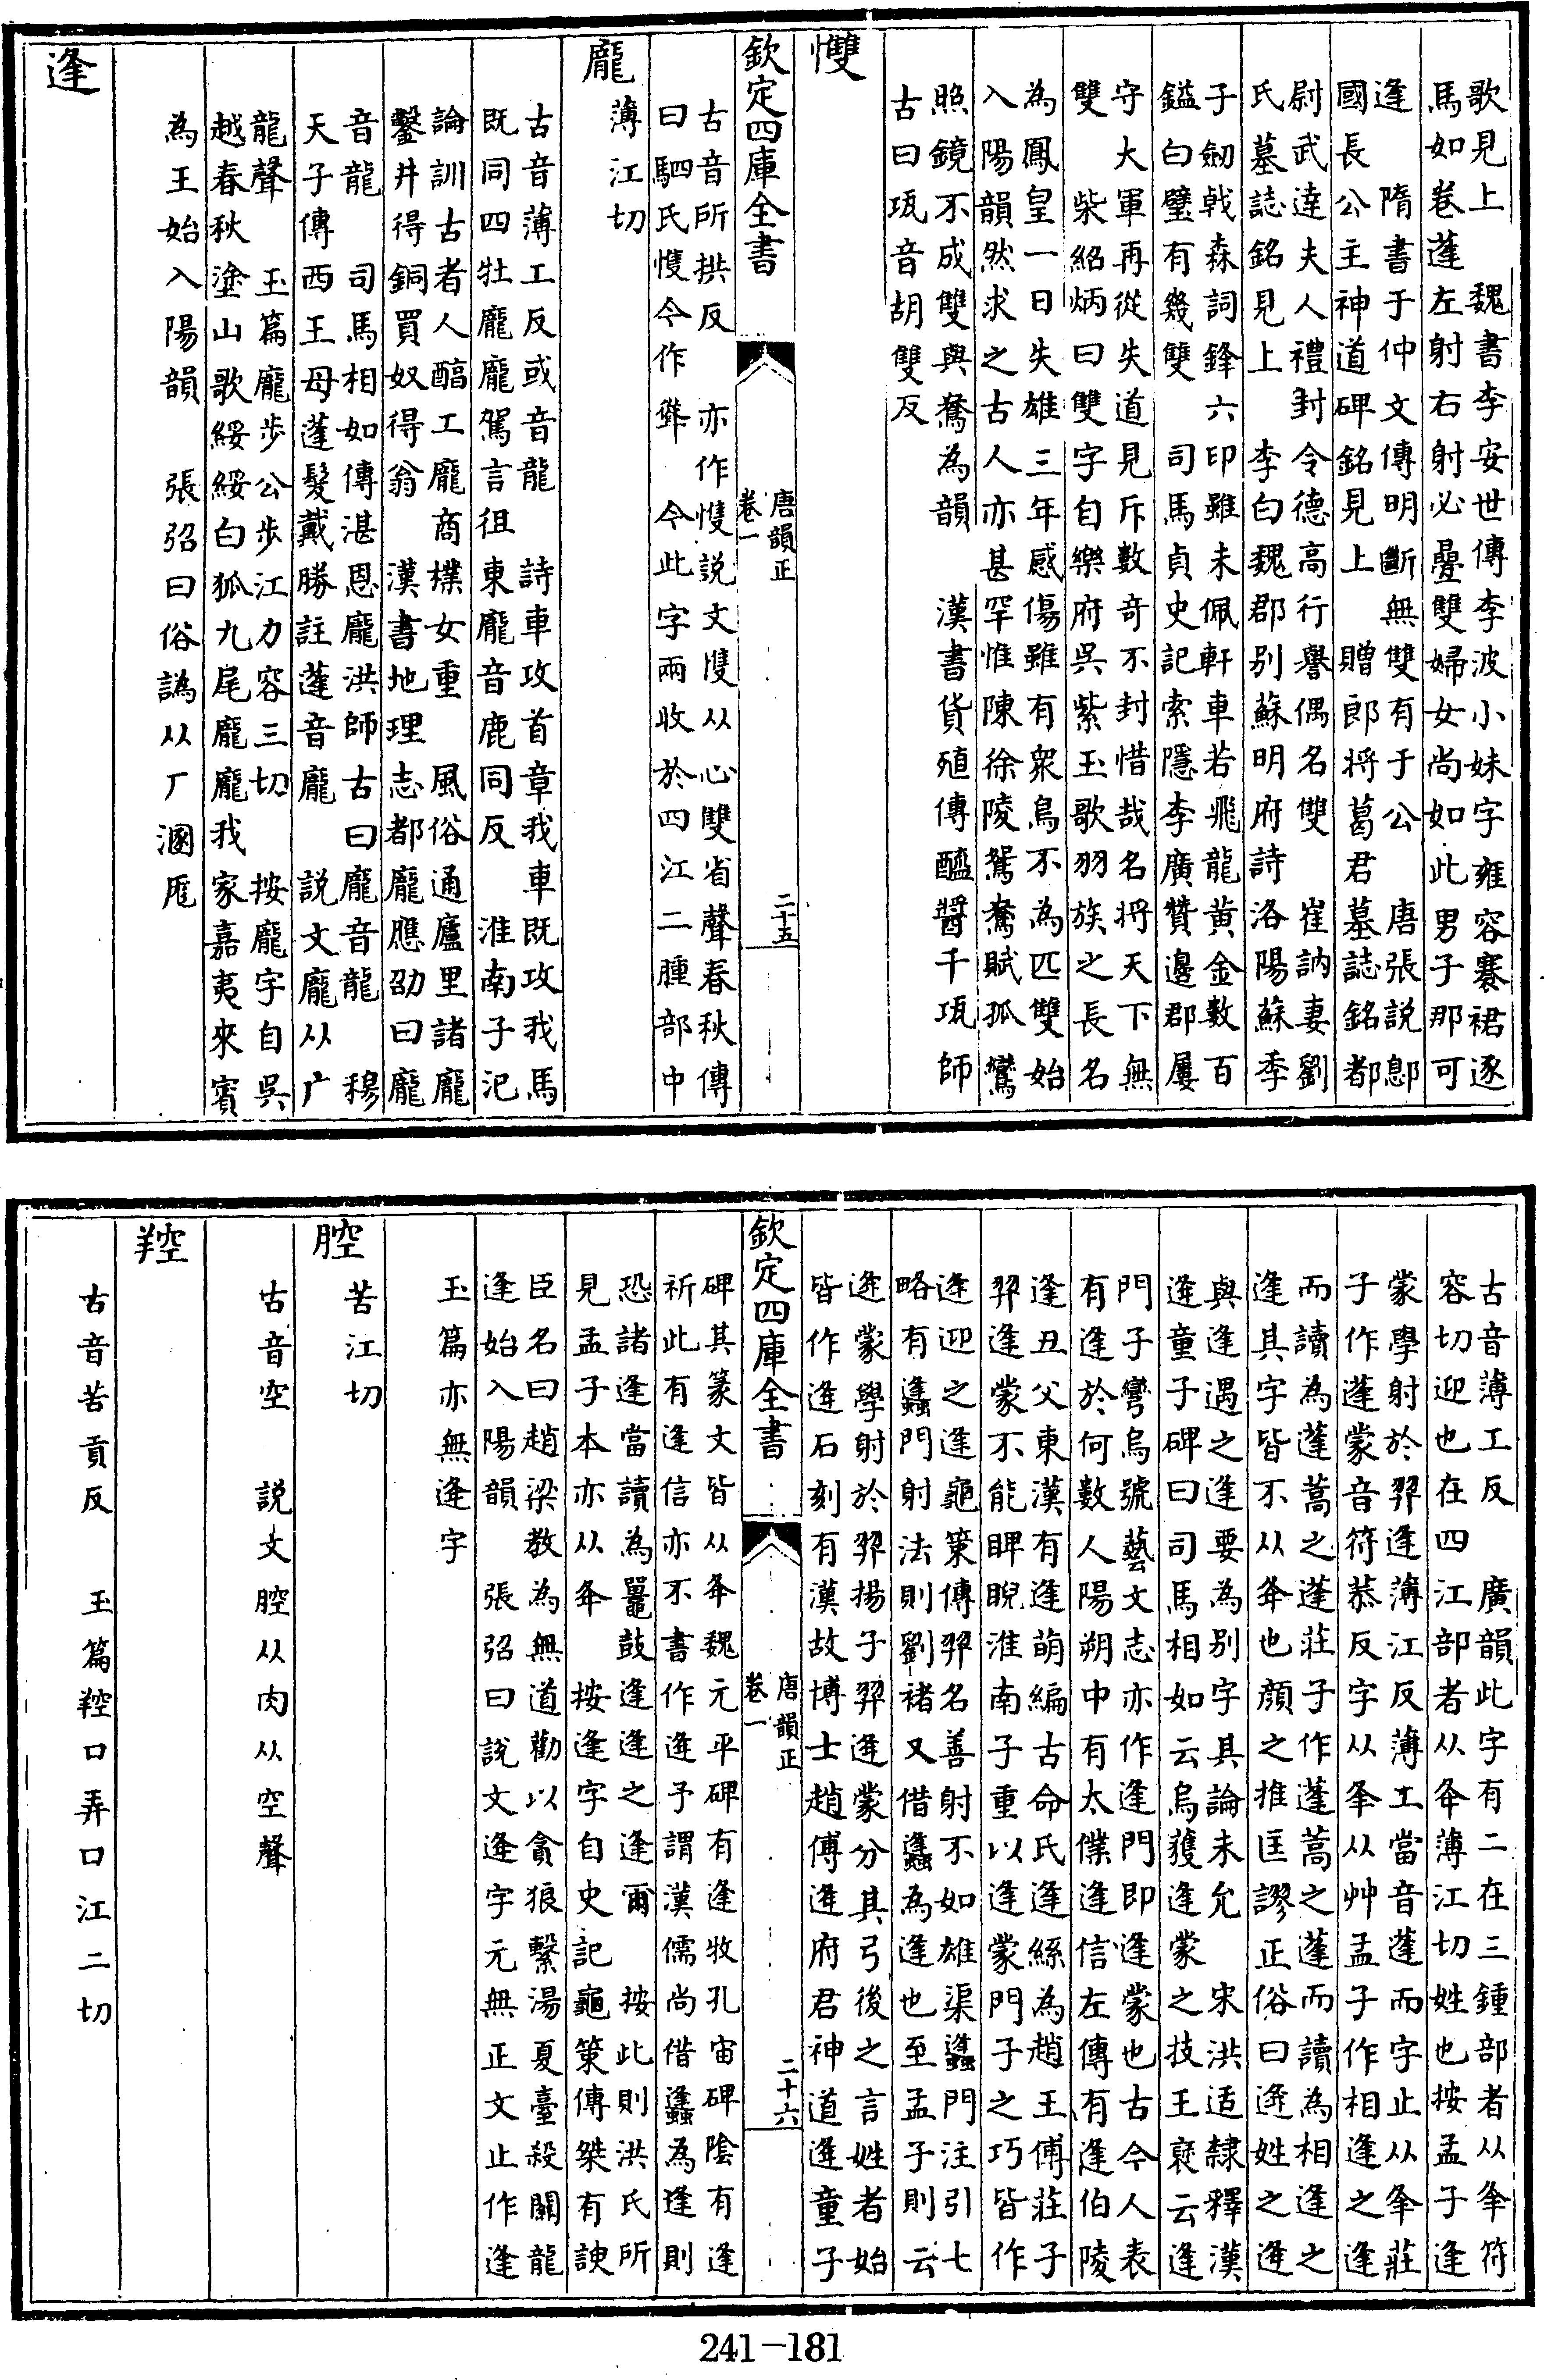 歌見上　魏書李安世傳李波小妹字雍容褰裙逐
馬如卷蓬左射右射必疊雙婦女尚如此男子那可
逢　隋書于仲文傳明斷無雙有于公　唐張說鄎
國長公主神道碑銘見上　贈郎将葛君墓誌銘都
尉武達夫人禮封令德高行譽偶名雙　崔訥妻劉
氏墓誌銘見上　李白魏郡别蘇明府詩洛陽蘇季
子劒戟森詞鋒六印雖未佩軒車若飛龍黄金數百
鎰白璧有幾雙　司馬貞史記索隱李廣贊邊郡屢
守大軍再從失道見斥數奇不封惜哉名将天下無
雙　柴紹炳曰雙字自樂府吳紫玉歌羽族之長名
為鳳皇一日失雄三年感傷雖有衆鳥不為匹雙始
入陽韻然求之古人亦甚罕惟陳徐陵鴛鴦賦孤鸞
照鏡不成雙與鴦為韻　漢書貨殖傳醯醬千瓨師
古曰瓨音胡雙反
㦼
欽定四庫全書　唐韻正卷一　二十五
古音所拱反　亦作愯說文愯从心雙省聲春秋傳
曰駟氏愯今作㩳　今此字兩收於四江二腫部中
龐
薄江切
古音薄工反或音龍　詩車攻首章我車既攻我馬
既同四牡龐龐駕言徂東龐音鹿同反　淮南子氾
論訓古者人醕工龐商樸女重　風俗通廬里諸龐
鑿井得銅買奴得翁　漢書地理志都龐應劭曰龐
音龍　司馬相如傳湛恩龐洪師古曰龐音龍　穆
天子傳西王母蓬髮戴勝註蓬音龐　說文龐从广
龍聲　玉篇龐步公步江力容三切　按龐字自吳
越春秋塗山歌綏綏白狐九尾龐龐我家嘉夷來賓
為王始入陽韻　張弨曰俗譌从厂溷厖
逄
古音薄工反　廣韻此字有二在三鍾部者从夆符
容切迎也在四江部者从夅薄江切姓也按孟子逄
蒙學射於羿逄薄江反薄工當音蓬而字止从夆莊
子作蓬蒙音符恭反字从夆从艸孟子作相逢之逢
而讀為蓬蒿之蓬莊子作蓬蒿之蓬而讀為相逢之
逢其字皆不从夅也顔之推匡謬正俗曰逄姓之逄
與逢遇之逢要為别字其論未允　宋洪适隸釋漢
逄童子碑曰司馬相如云烏獲逢蒙之技王襃云逢
門子彎烏號藝文志亦作逢門即逢蒙也古今人表
有逢於何數人陽朔中有太僕逢信左傳有逢伯陵
逢丑父東漢有逢萌編古命氏逢絲為趙王傅莊子
羿逢蒙不能睥睨淮南子重以逢蒙門子之巧皆作
逢迎之逢龜策傳羿名善射不如雄渠蠭門注引七
略有蠭門射法則劉禇又借蠭為逢也至孟子則云
逄蒙學射於羿揚子羿逄蒙分其弓後之言姓者始
皆作逄石刻有漢故博士趙傅逄府君神道逄童子
欽定四庫全書　唐韻正卷一　二十六
碑其篆文皆从夅魏元平碑有逢牧孔宙碑陰有逢
祈此有逢信亦不書作逄予謂漢儒尚借蠭為逢則
恐諸逢當讀為鼉鼓逢逢之逢爾　按此則洪氏所
見孟子本亦从夅　按逢字自史記龜策傳桀有諛
臣名曰趙梁教為無道勸以貪狼繫湯夏臺殺關龍
逢始入陽韻　張弨曰說文逄字元無正文止作逢
玉篇亦無逄字
腔
苦江切
古音空　說文腔从肉从空聲
羫
古音苦貢反　玉篇羫口弄口江二切
241—181